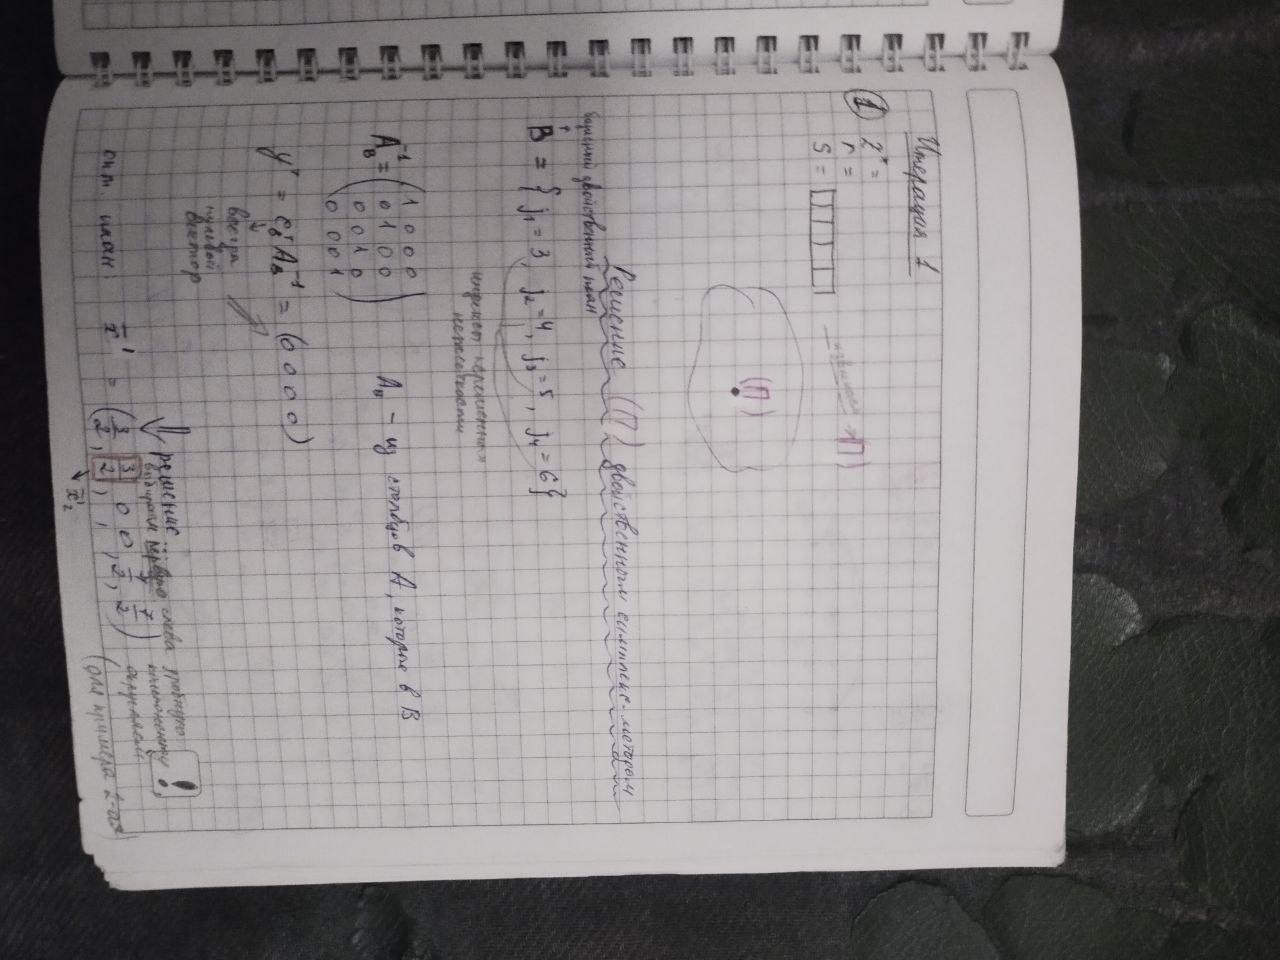 Итерация 1
① z* =
r =
S = извлекаем → (П)
(П)
Решение (П) двойственным симплекс-методом
базисный двойственный план
B = { j₁ = 3, j₂ = 4, j₃ = 5, j₄ = 6 }
индексы переменных
A_B⁻¹ = ( 1 0 0 0
0 1 0 0
0 0 1 0
0 0 0 1 )
A_B – из столбцов A, которые в B
yᵀ = c_Bᵀ A_B⁻¹ = (0 0 0 0)
всегда
нулевой
вектор
решение
выбираем первую слева дробную компоненту, округляем !
опт. план: x̄¹ = ( 3/2, 3/2, 0, 0, 7/2, 7/2 )
(для примера 2-ая)
x̄¹₂